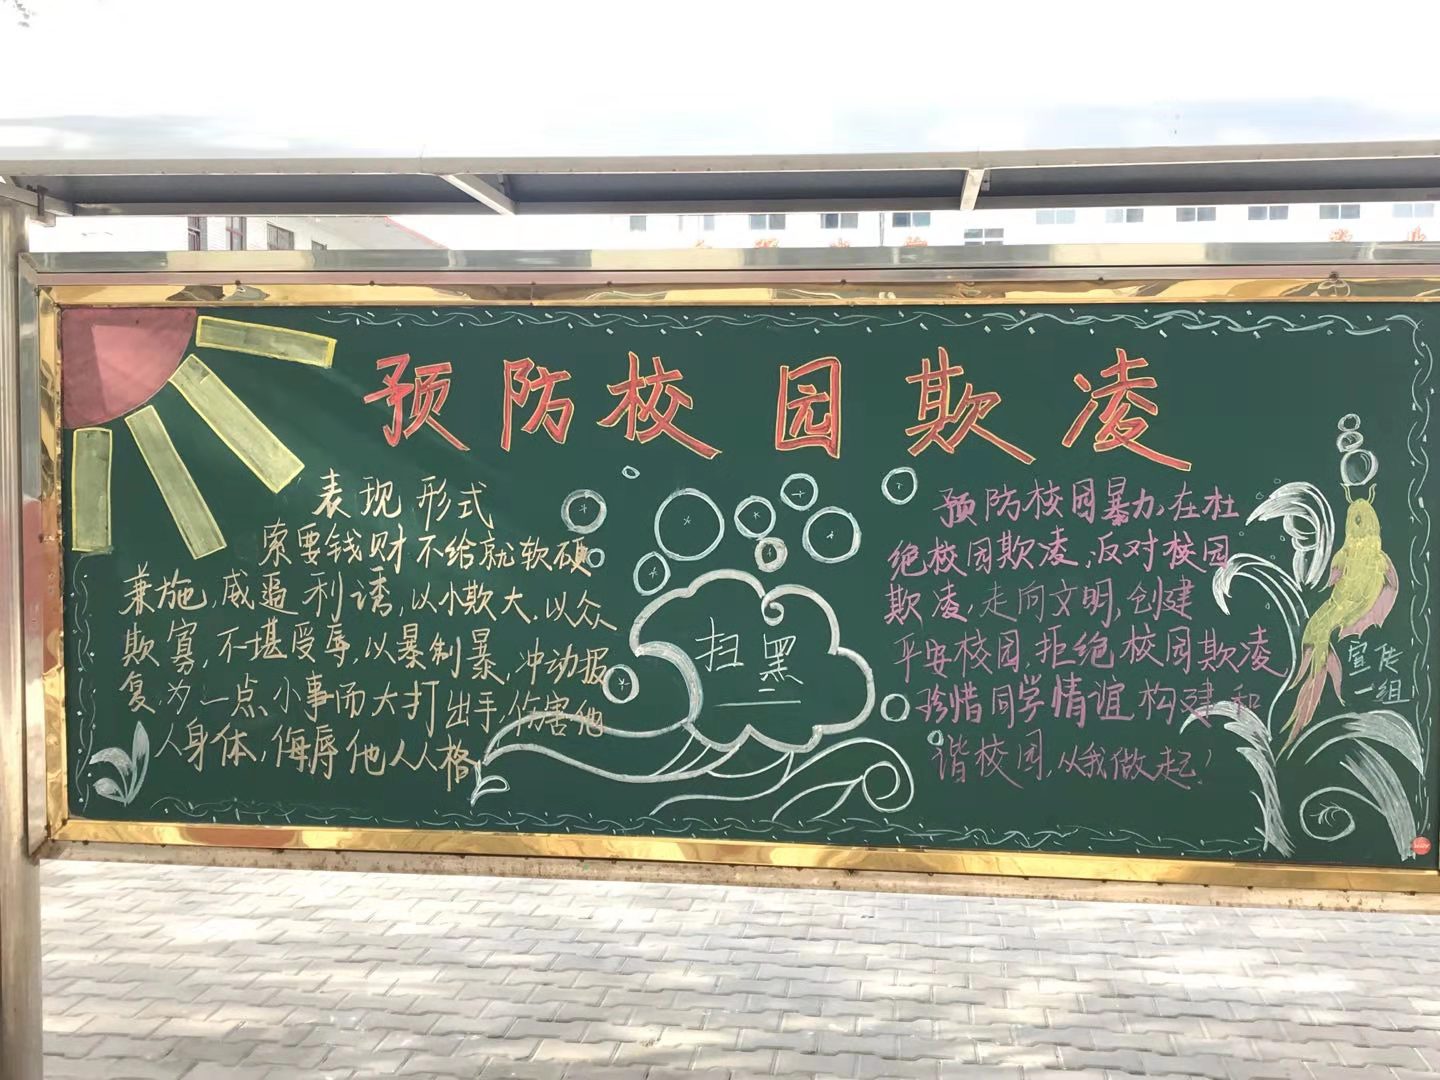 预防校园欺凌
表现形式
索要钱财不给就软硬
兼施,威逼利诱,以小欺大,以众
欺寡,不堪受辱,以暴制暴,冲动报
复,为一点小事而大打出手,伤害他
人身体,侮辱他人人格
扫黑
预防校园暴力,在杜
绝校园欺凌,反对校园
欺凌,走向文明,创建
平安校园,拒绝校园欺凌
珍惜同学情谊构建和
谐校园,从我做起!
宣传
一组